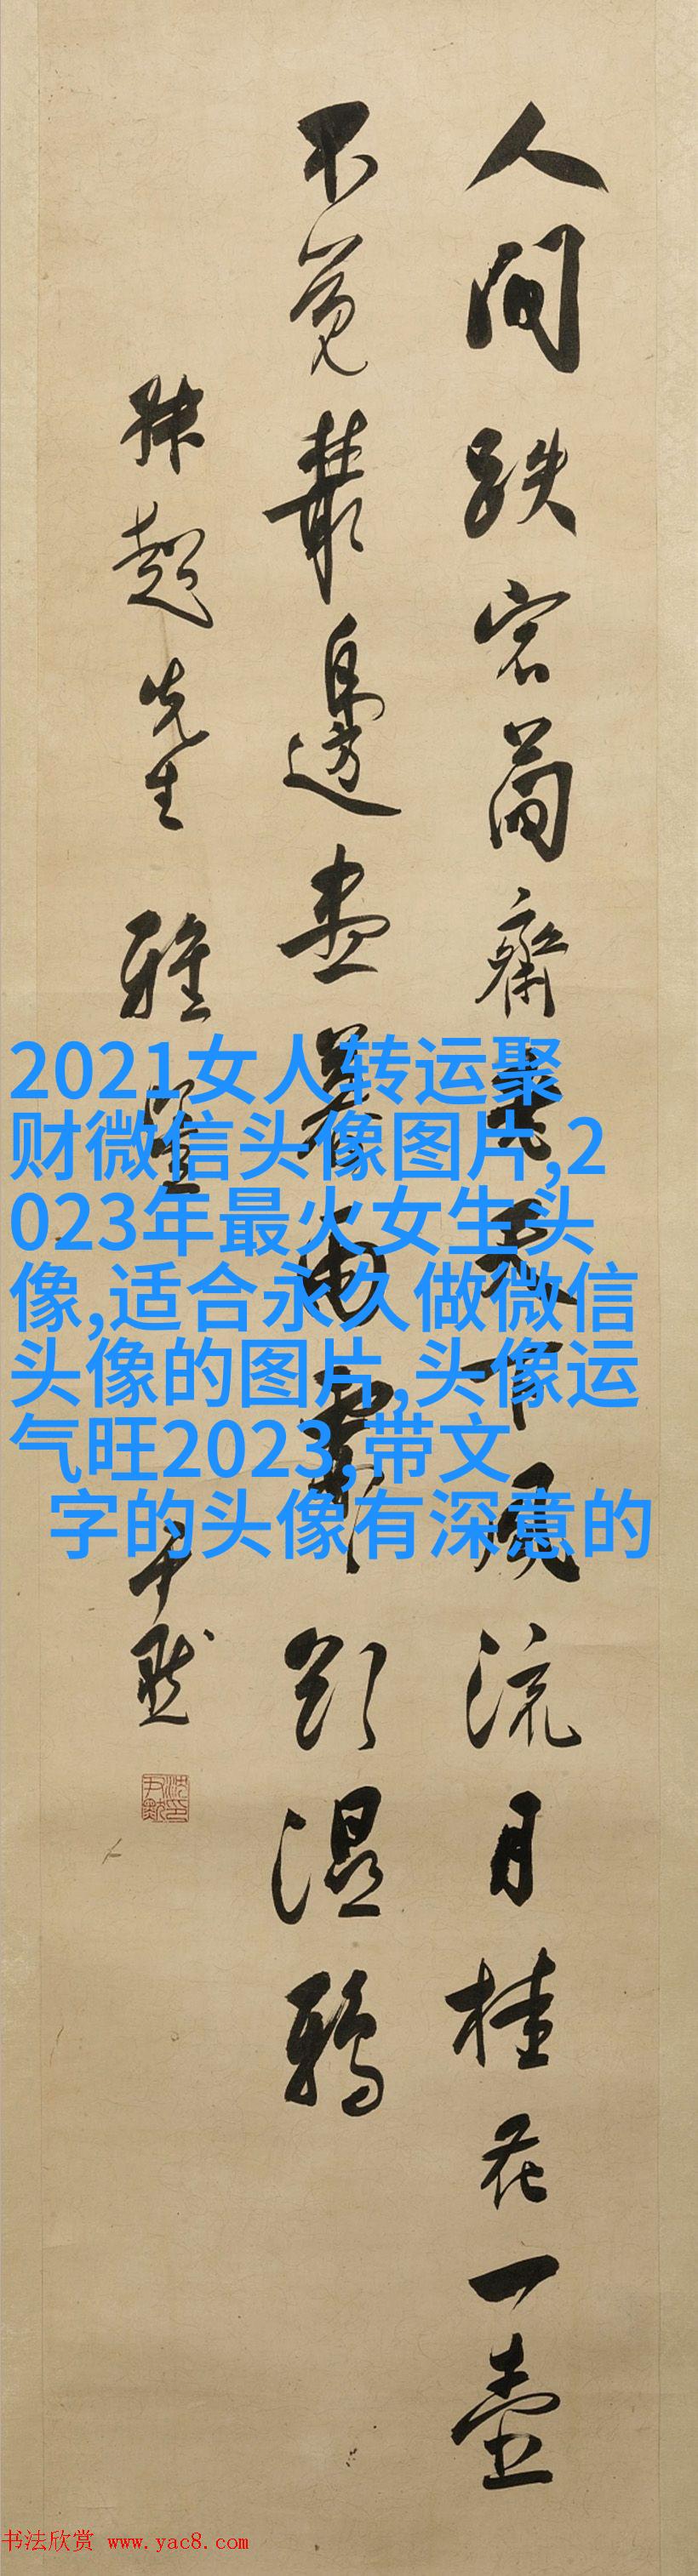 人间跌宕简斋老天下风流月桂花一壶
不觉丛边尽暮雨霏欲湿鸦
超先生雅鉴
尹默
沈尹默印
2021女人转运聚
财微信头像图片,2
023年最火女生头
像,适合永久做微信
头像的图片,头像运
气旺2023,带文
字的头像有深意的
书法欣赏 www.yac8.com